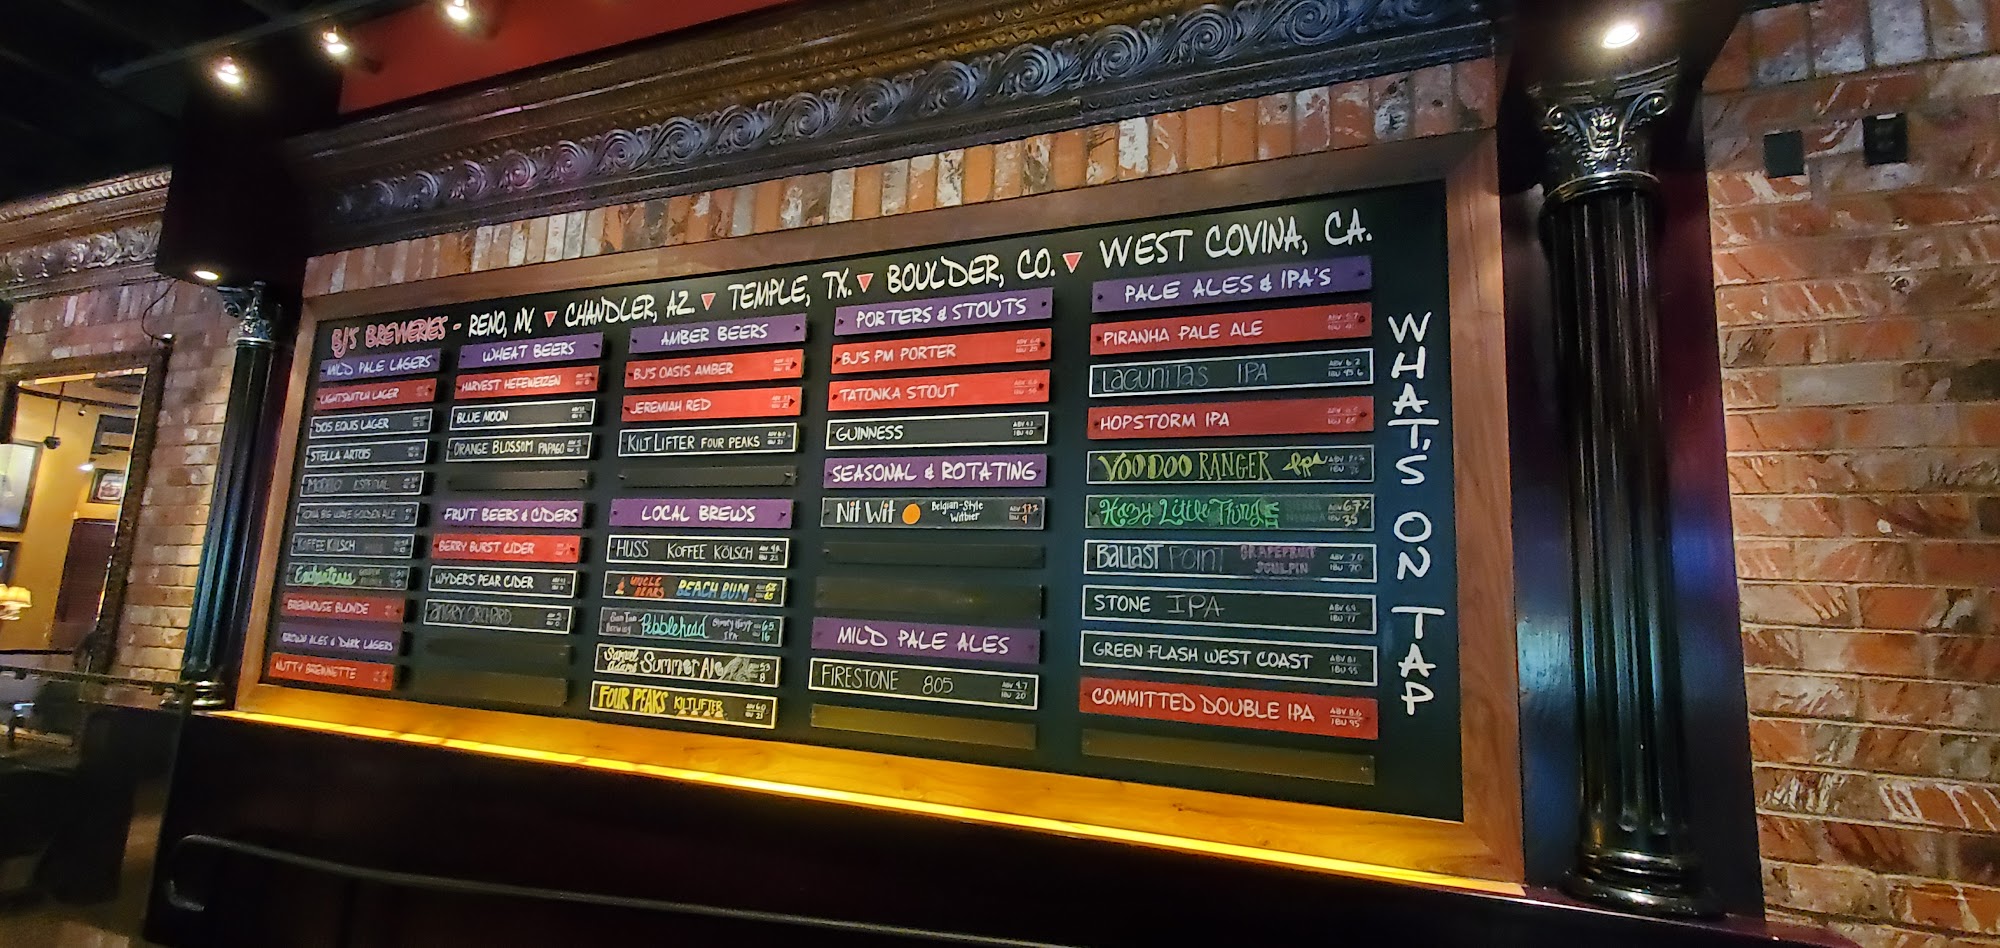 BJ'S BREWERIES - RENO, NV. ▼ CHANDLER, AZ. ▼ TEMPLE, TX. ▼ BOULDER, CO. ▼ WEST COVINA, CA.
MILD PALE LAGERS
LIGHTSWITCH LAGER
DOS EQUIS LAGER
STELLA ARTOIS
MODELO ESPECIAL
KONA BIG WAVE GOLDEN ALE
KOFFEE KOLSCH
Enchantress
BREWHOUSE BLONDE
BROWN ALES & DARK LAGERS
NUTTY BREWNETTE
WHEAT BEERS
HARVEST HEFEWEIZEN
BLUE MOON
ORANGE BLOSSOM PAPAGO
FRUIT BEERS & CIDERS
BERRY BURST CIDER
WYDERS PEAR CIDER
ANGRY ORCHARD
AMBER BEERS
BJ'S OASIS AMBER
JEREMIAH RED
KILT LIFTER FOUR PEAKS
LOCAL BREWS
HUSS KOFFEE KÖLSCH
UNCLE BEARS BEACH BUM
Pebblehead
IPA
Samuel Adams Summer Ale
FOUR PEAKS KILTLIFTER
PORTERS & STOUTS
BJ'S PM PORTER
TATONKA STOUT
GUINNESS
SEASONAL & ROTATING
Nit Wit Belgian-Style Witbier
MILD PALE ALES
FIRESTONE 805 ABV 4.7 IBU 20
PALE ALES & IPA'S
PIRANHA PALE ALE
LAGUNITAS IPA ABV 6.2
HOPSTORM IPA
VOODOO RANGER IPA
Hazy Little Thing ABV 6.7% IBU 35
BALLAST POINT GRAPEFRUIT SCULPIN ABV 7.0 IBU 70
STONE IPA ABV 6.9 IBU 77
GREEN FLASH WEST COAST ABV 8.1 IBU 95
COMMITTED DOUBLE IPA ABV 8.6 IBU 95
WHAT'S ON TAP